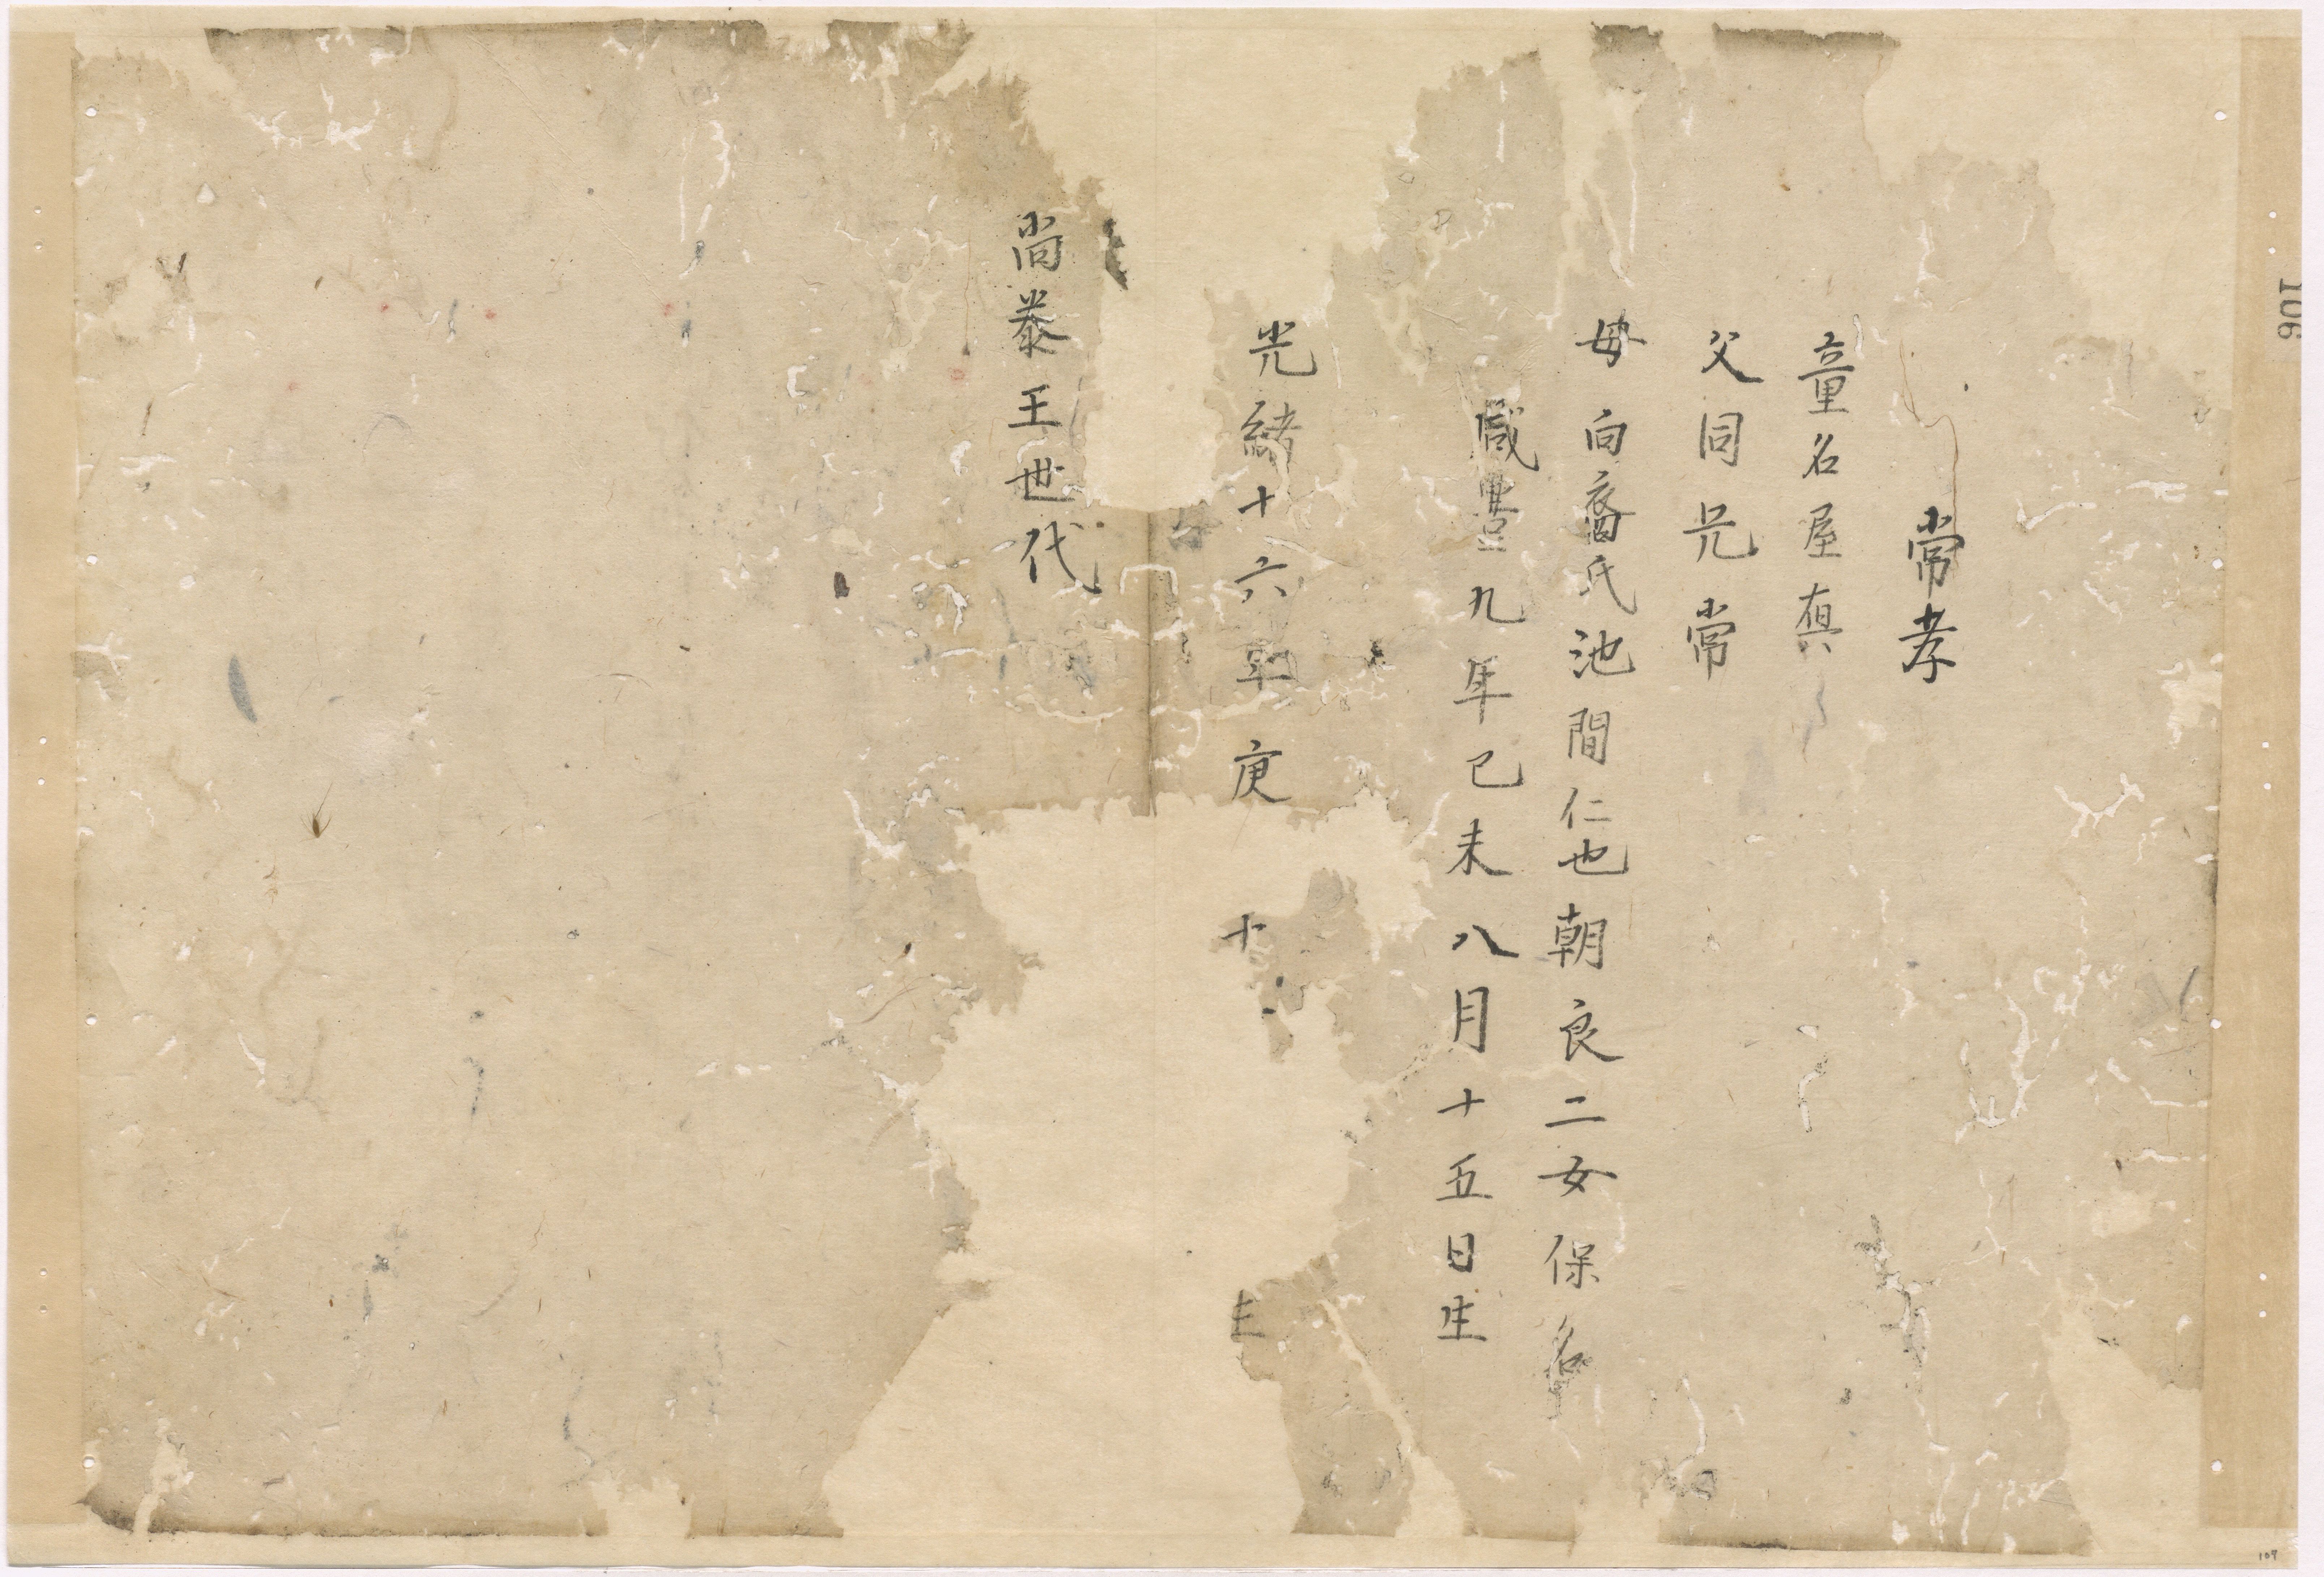 106
常孝
童名屋真
父同兄常
母向裔氏池間仁也朝良二女保名
咸豊九年己未八月十五日生
光緒十六年庚 十 生
尚泰王世代
107